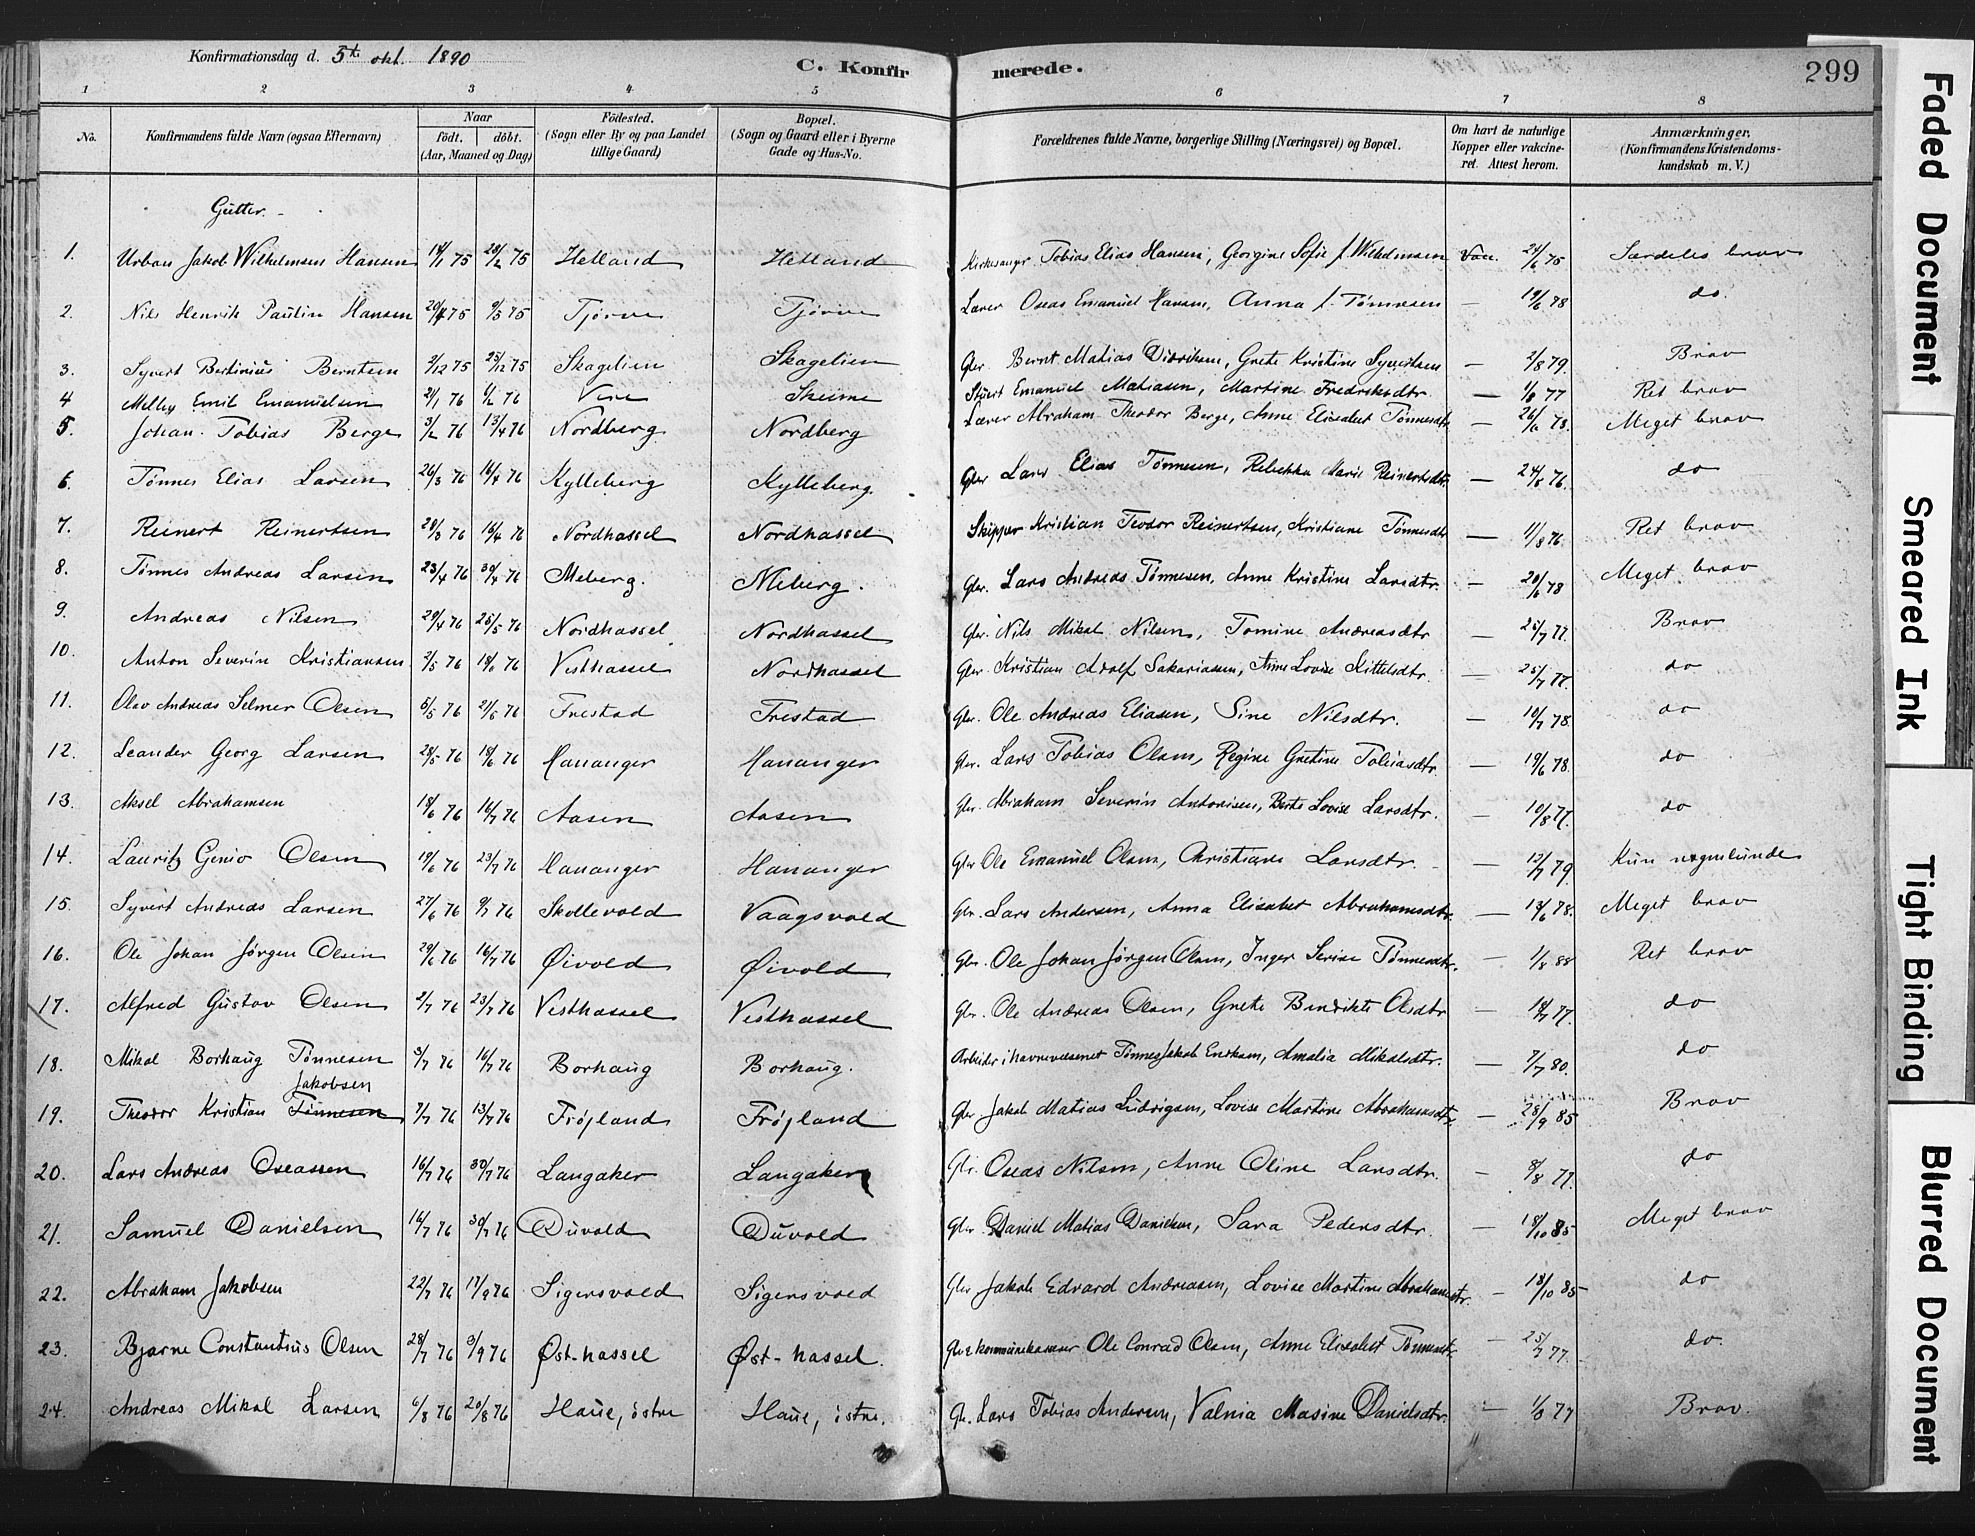 Konfirmationsdag d. 5te okt. 1890
C. Konfirmerede.
299
1 2 3 4 5 6 7 8
No. Konfirmandens fulde Navn (ogsaa Efternavn) Naar født. døbt. (Aar, Maaned og Dag) Fødested. (Sogn eller By og paa Landet tillige Gaard) Bopæl. (Sogn og Gaard eller i Byerne Gade og Hus-No. Forældrenes fulde Navne, borgerlige Stilling (Næringsvei) og Bopæl. Om havt de naturlige Kopper eller vakcineret. Attest herom. Anmærkninger. (Konfirmandens Kristendomskundskab m. V.)
Gutter.
1. Urban Jakob Wilhelmsen Hansen 14/1 75 28/2 75 Helland Helland Kirkesanger Tobias Elias Hansen, Georgine Sofie f. Wilhelmsen Vac. 24/6 75 Særdeles brav
2. Nils Henrik Paulin Hansen 20/4 75 9/5 75 Tjørve Tjørve Lærer Oseas Emanuel Hansen, Anna f. Tønnesen — 19/6 78 do.
3. Syvert Bertinius Berntsen 2/12 75 25/12 75 Skagelien Skagelien Gbr. Bernt Matias Didriksen, Grete Kristine Syvertsen — 2/8 79. Brav
4 Melley Emil Emanuelsen 21/1 76 76 Vere Skeime Emanuel Matiasen, Martine Fredriksdtr. — 1/8 77 Ret brav
5. Johan Tobias Berge 3/2 76 13/4 76 Nordberg Nordberg Lærer Abraham Theodor Berge, Anne Elisabet Tønnesdtr. — 26/6 78. Meget brav
6. Tønnes Elias Larsen 26/3 76 16/4 76 Kylleberg Kylleberg. Gbr Lars Elias Tønnesen, Rebekka Marie Reinertsdtr. — 24/6 76. do
7. Reinert Reinertsen 28/3 76 16/4 76 Nordhassel Nordhassel Skipper Kristian Teodor Reinertsen, Kristiane Tønnesdtr — 1/8 76. Ret brav
8. Tønnes Andreas Larsen 23/4 76 30/4 76 Meberg. Meberg. Gbr. Lars Andreas Tønnesen, Anne Kristine Larsdtr. — 20/6 78 Meget brav
9. Andreas Nilsen 29/4 76 25/5 76 Nordhassel Nordhassel Gbr. Nils Mikal Nilsen, Tomine Andreasdtr — 25/7 77. Brav
10. Anton Severin Kristiansen 2/5 76 18/6 76 Vesthassel Nordhassel Gbr. Kristian Adolf Sakariasen, Anne Lovise Kittelsdtr. — 25/7 77. do
11. Olav Andreas Selmer Olsen 5/5 76 21/5 76 Frestad Frestad Gbr. Ole Andreas Eliasen, Sine Nilsdtr. — 10/7 78. do
12. Leander Georg Larsen 28/5 76 18/6 76 Hananger Hananger Gbr. Lars Tobias Olsen, Regine Gretine Tobiasdtr. — 19/6 78. do
13. Aksel Abrahamsen 18/6 76 16/7 76 Aasen Aasen Gbr. Abraham Severin Antonisen, Berte Lovise Larsdtr. — 10/8 77. do
14. Lauritz Genio Olsen 19/6 76 23/7 76 Hananger Hananger Gbr Ole Emanuel Olsen, Christiane Larsdtr. — 12/7 79. Kun nogenlunde
15. Syvert Andreas Larsen 27/6 76 9/7 76 Skollevold Vaagsvold Gbr. Lars Andersen, Anna Elisabet Abrahamsdtr. — 18/6 78. Meget brav
16. Ole Johan Jørgen Olsen 29/6 76 16/7 76 Øivold Øivold Gbr. Ole Johan Jørgen Olsen, Inger Serine Tønnesdtr. — 1/8 88 Ret brav
17. Alfred Gustav Olsen 2/7 76 23/7 76 Vesthassel Vesthassel Gbr. Ole Andreas Olsen, Grete Bendikte Olsdtr — 18/7 77. do
18. Mikal Borhaug Tønnesen 3/7 76 16/7 76 Borhaug Borhaug. Arbeider i havnevæsenet Tønnes Jakob Eriksen, Amalia Mikalsdtr. — 7/7 80. do
Jakobsen
19. Theodor Kristian Tønnesen 7/7 76 13/7 76 Frøjland Frøjland Gbr Jakob Matias Ludvigsen, Lovise Martine Abrahamsdtr. — 28/9 85 Brav
20. Lars Andreas Oseassen 16/7 76 30/7 76 Langaker Langaker Gbr. Oseas Nilsen, Anne Oline Larsdtr. — 8/8 77. do
21. Samuel Danielsen 16/7 76 30/7 76 Duvold Duvold Gbr Daniel Matias Danielsen, Sara Pedersdtr. — 18/10 85 Meget brav
22. Abraham Jakobsen 22/7 76 17/9 76 Sigersvold Sigersvold Gbr Jakob Edvard Andreasen, Lovise Martine Abrahamsdtr. — 18/10 85 do
23. Bjarne Constantius Olsen 28/7 76 3/9 76 Øst-hassel Øst-hassel. Gbr & kommunekasser Ole Conrad Olsen, Anne Elisabet Tønnesdtr. — 25/7 77. do.
24. Andreas Mikal Larsen 6/8 76 20/8 76 Haue, østre Haue, østre. Gbr. Lars Tobias Andersen, Valnia Masine Danielsdtr. — 1/8 77 Brav.
Faded Document
Smeared Ink
Tight Binding
Blurred Document